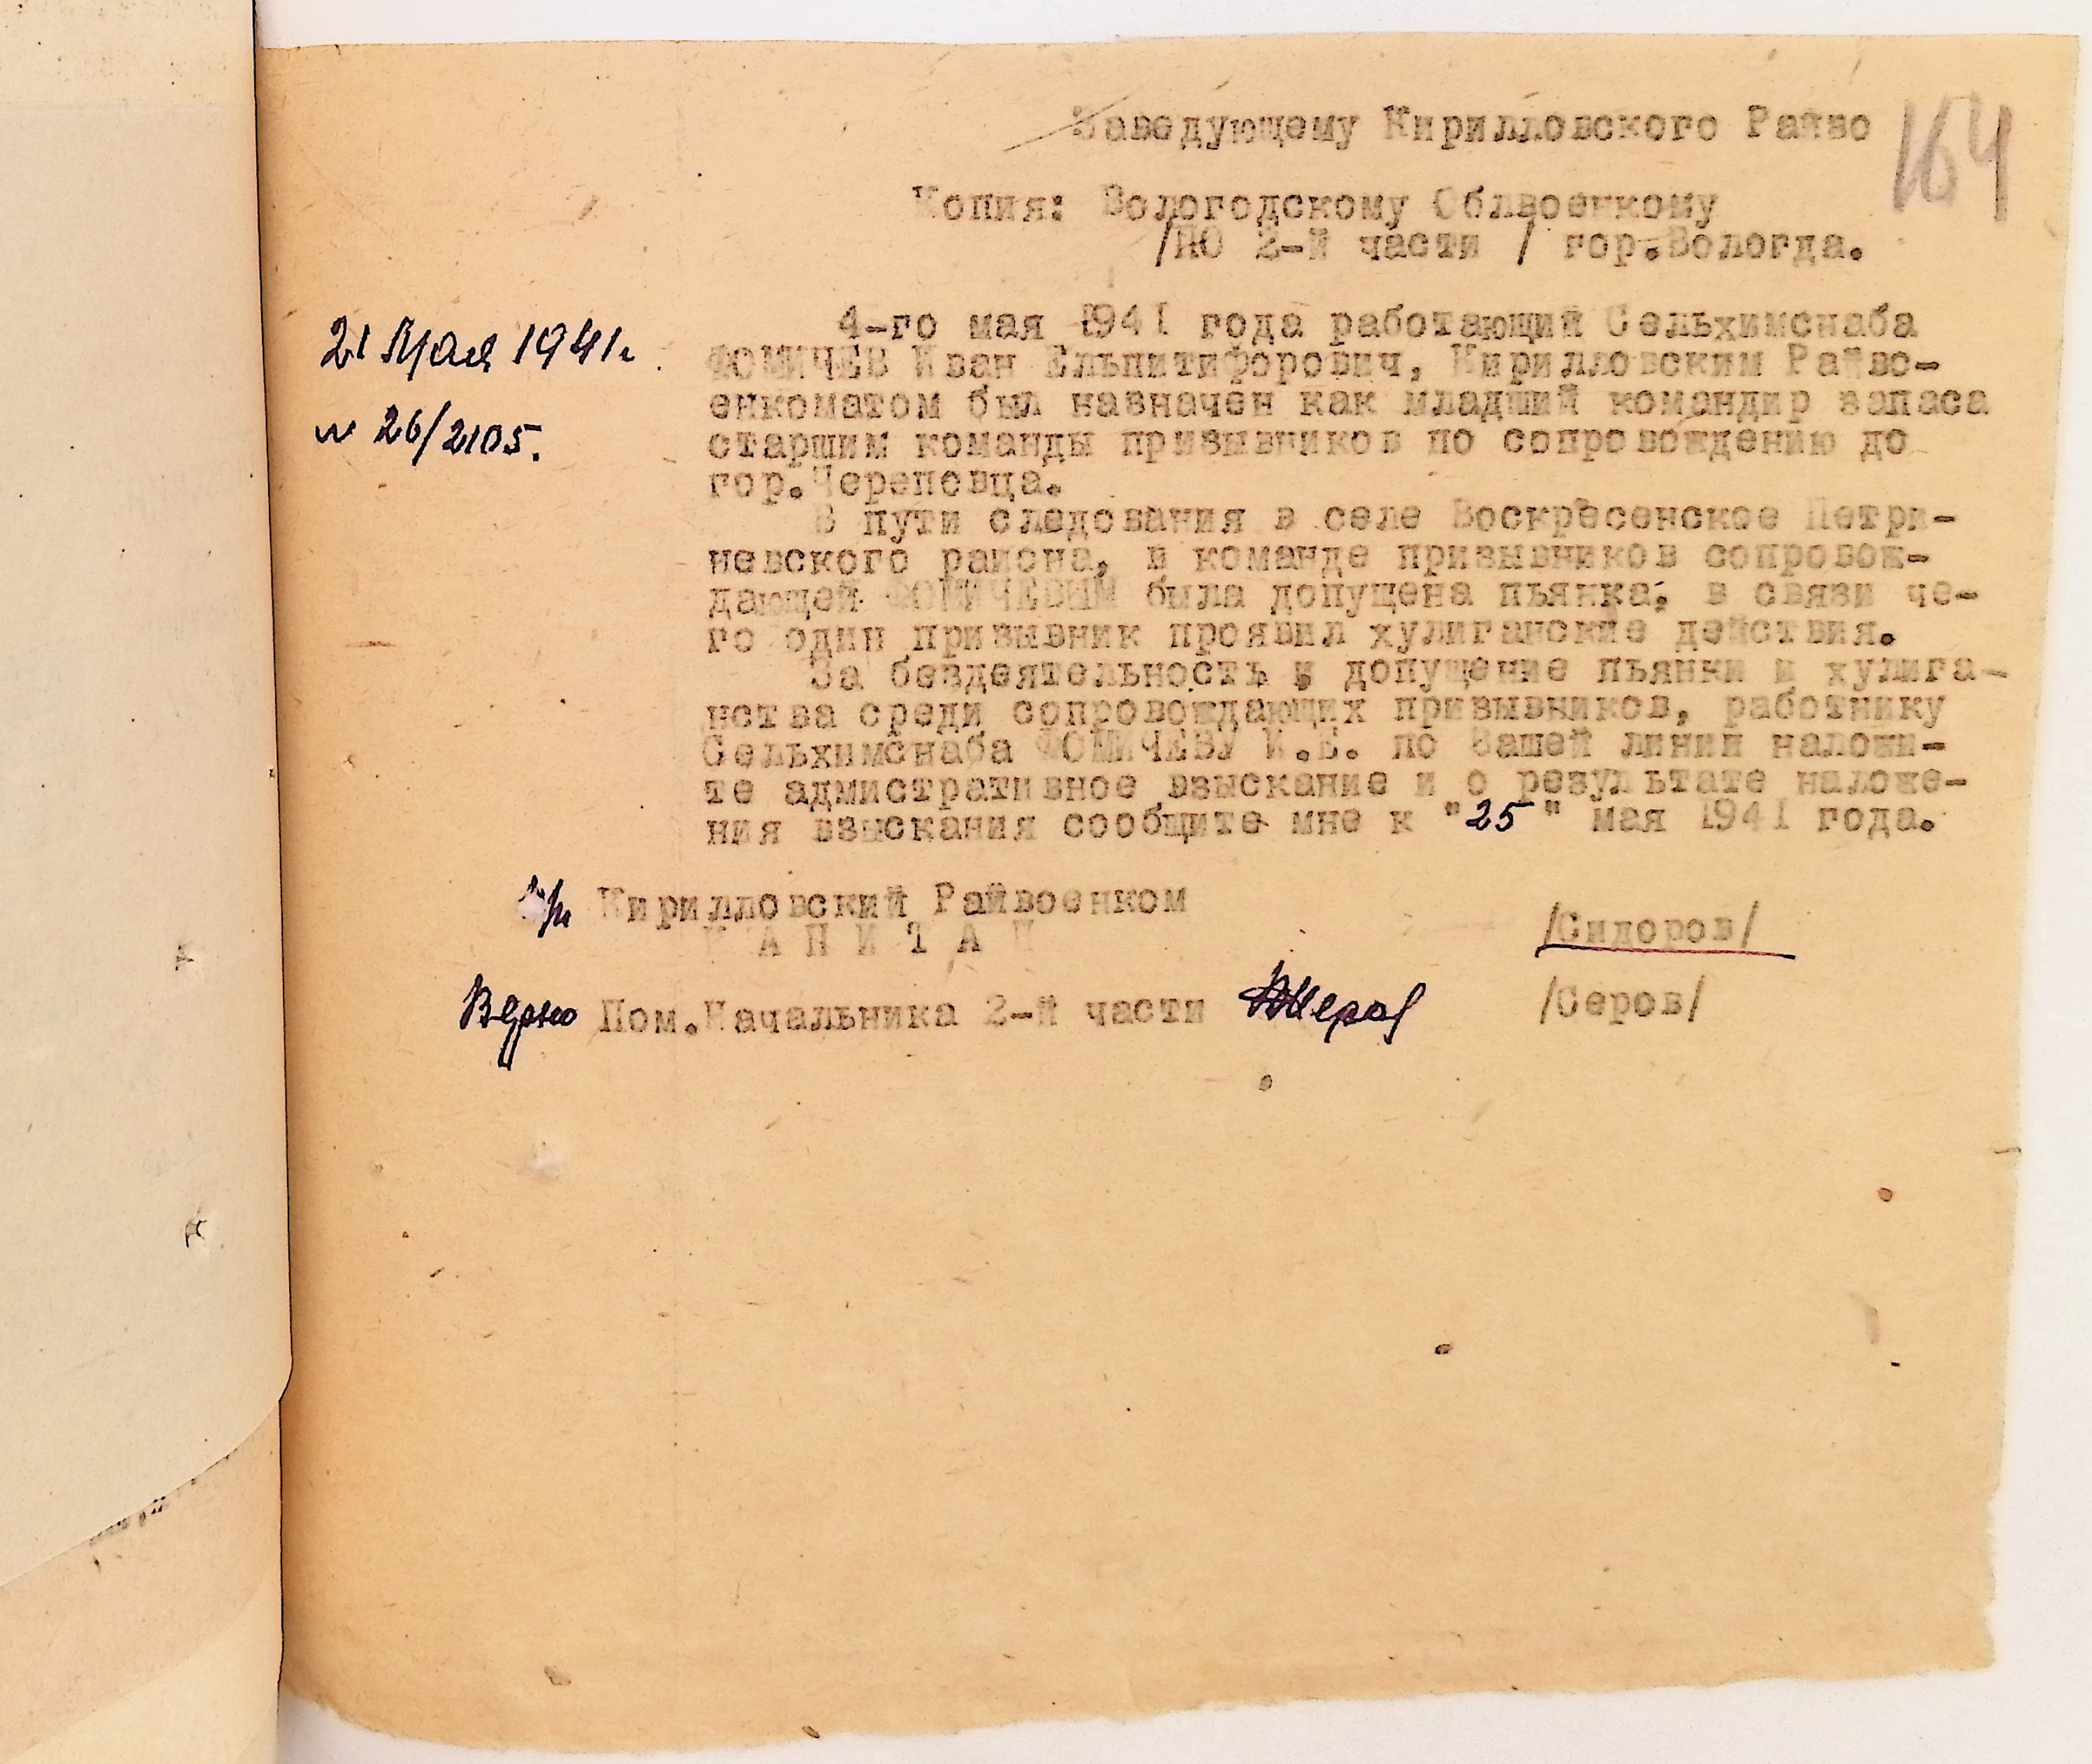 Заведующему Кирилловского Райзо
164
Копия: Вологодскому Облвоенкому
/ПО 2-й части / гор.Вологда.
21 Мая 1941г.
№ 26/2105.
4-го мая 1941 года работающий Сельхимснаба
ФОМИЧЕВ Иван Ельпитифорович, Кирилловским Райво-
енкоматом был назначен как младший командир запаса
старшим команды призывников по сопровождению до
гор.Череповца.
В пути следования в селе Воскресенское Петри-
невского района, в команде призывников сопровож-
дающей ФОМИЧЕВЫМ была допущена пьянка, в связи че-
го один призывник проявил хулиганские действия.
За бездеятельность и допущение пьянки и хулига-
нства среди сопровождающих призывников, работнику
Сельхимснаба ФОМИЧЕВУ И.Е. по Вашей линии наложи-
те адмистративное взыскание и о результате наложе-
ния взыскания сообщите мне к "25" мая 1941 года.
Кирилловский Райвоенком
КАПИТАН
/Сидоров/
Верно Пом.Начальника 2-й части
/Серов/